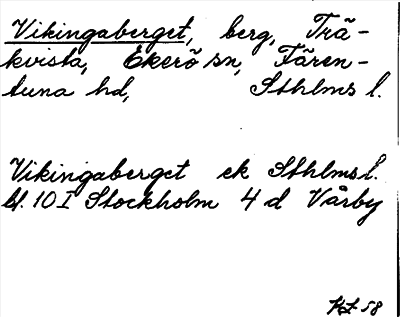 Vikingaberget, berg, Trä-
kvista, Ekerö sn, Fären-
tuna hd, Sthlms l.
Vikingaberget ek Sthlms l.
bl. 10 I Stockholm 4 d Vårby
58